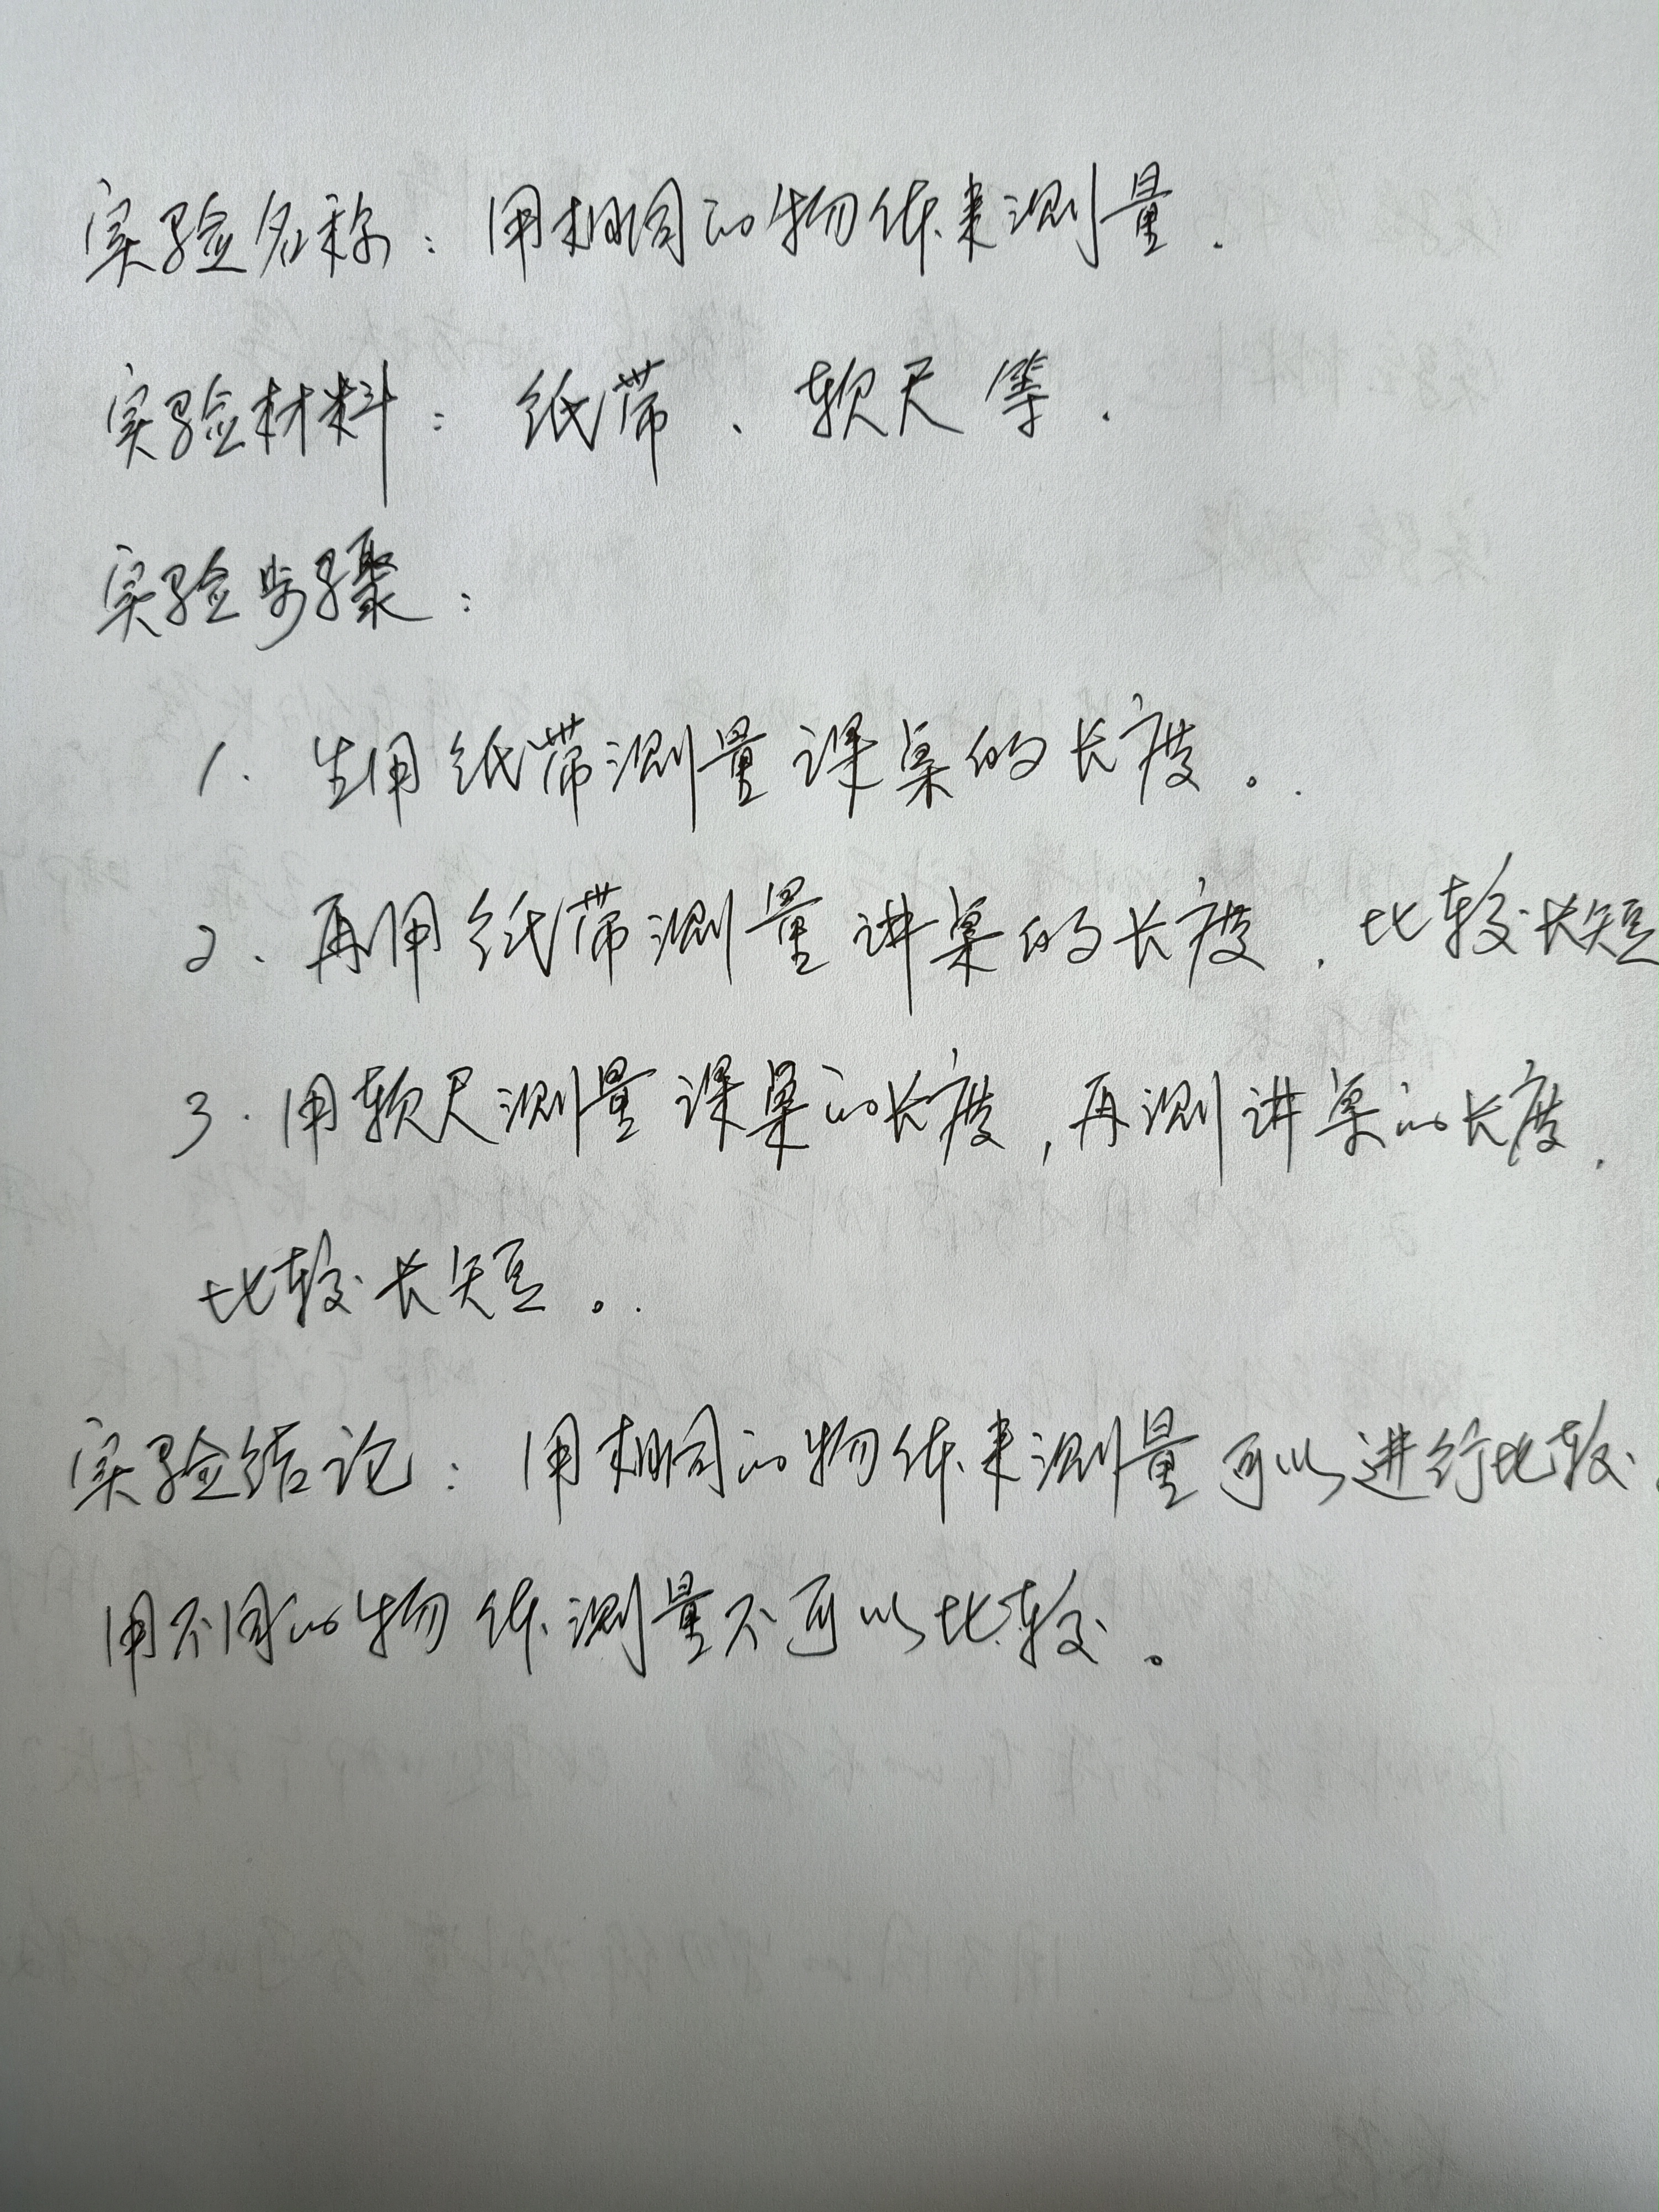 实验名称：用相同的物体来测量.
实验材料：纸带、软尺等.
实验步骤：
1. 生用纸带测量课桌的长度。.
2、再用纸带测量讲桌的长度. 比较长短
3. 用软尺测量课桌的长度,再测讲桌的长度.
比较长短。.
实验结论：用相同的物体来测量可以进行比较.
用不同的物体测量不可以比较。